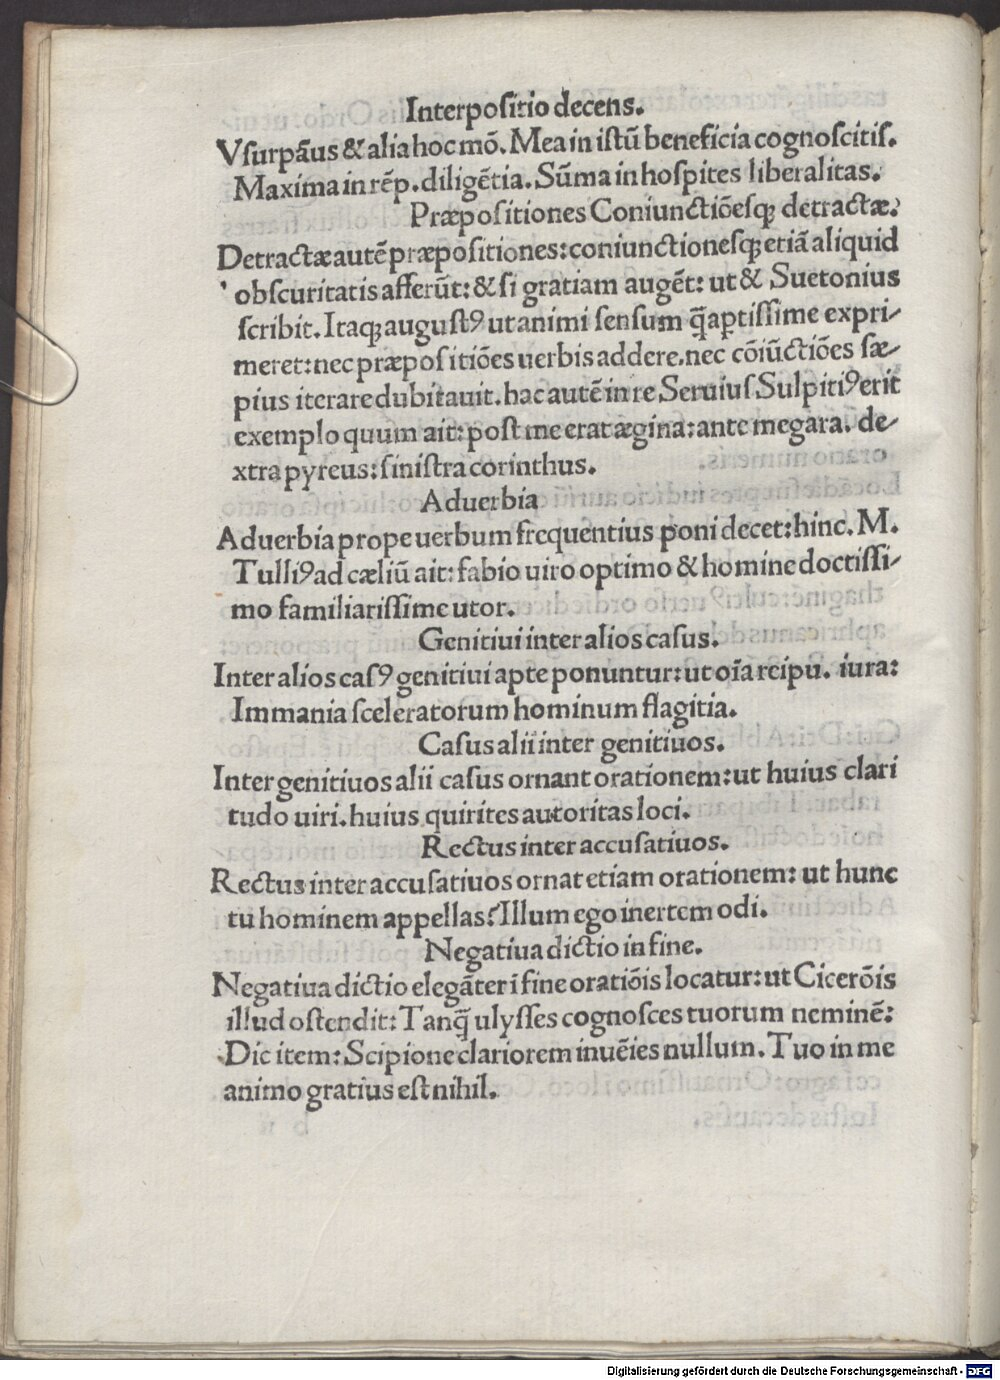 Interpositio decens.
Vsurpãus & alia hoc mõ. Mea in istũ beneficia cognoscitis.
Maxima in rẽp. diligẽtia. Sũma in hospites liberalitas.
Præpositiones Coniunctiõesq; detractæ.
Detractæ autẽ præpositiones: coniunctionesq; etiã aliquid
obscuritatis afferũt: & si gratiam augẽt: ut & Suetonius
scribit. Itaq; augustꝰ ut animi sensum q̃aptissime expri-
meret: nec præpositiões uerbis addere. nec cõiũctiões sæ-
pius iterare dubitauit. hac autẽ in re Seruius Sulpitiꝰ erit
exemplo quum ait: post me erat ægina: ante megara. de-
xtra pyreus: sinistra corinthus.
Aduerbia
Aduerbia prope uerbum frequentius poni decet: hinc. M.
Tulliꝰ ad cæliũ ait: fabio uiro optimo & homine doctissi-
mo familiarissime utor.
Genitiui inter alios casus.
Inter alios casꝰ genitiui apte ponuntur: ut oĩa reipu. iura:
Immania sceleratorum hominum flagitia.
Casus alii inter genitiuos.
Inter genitiuos alii casus ornant orationem: ut huius clari
tudo uiri. huius quirites autoritas loci.
Rectus inter accusatiuos.
Rectus inter accusatiuos ornat etiam orationem: ut hunc
tu hominem appellas? Illum ego inertem odi.
Negatiua dictio in fine.
Negatiua dictio elegãter ĩ fine oratiõis locatur: ut Cicerõis
illud ostendit: Tanq̃ ulysses cognosces tuorum neminẽ:
Dic item: Scipione clariorem inuẽies nullum. Tuo in me
animo gratius est nihil.
Digitalisierung gefördert durch die Deutsche Forschungsgemeinschaft - DFG